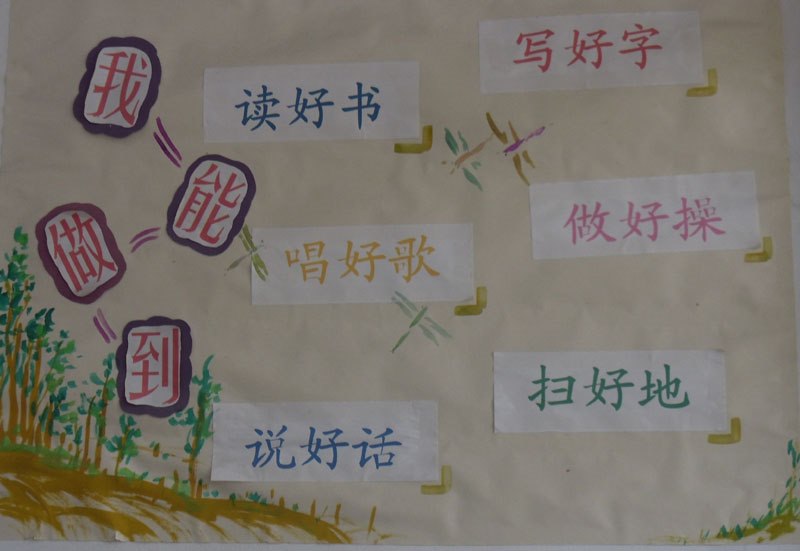 我能做到
读好书
写好字
唱好歌
做好操
说好话
扫好地